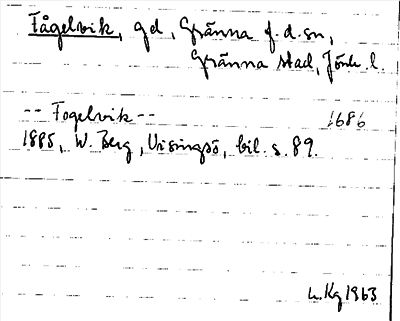 Fågelvik, gd, Gränna f.d. sn,
Gränna stad, Jönk. l.
-- Fogelvik -- 1686
1885, W. Berg, Visingsö, bil. s. 89.
Kg 1963